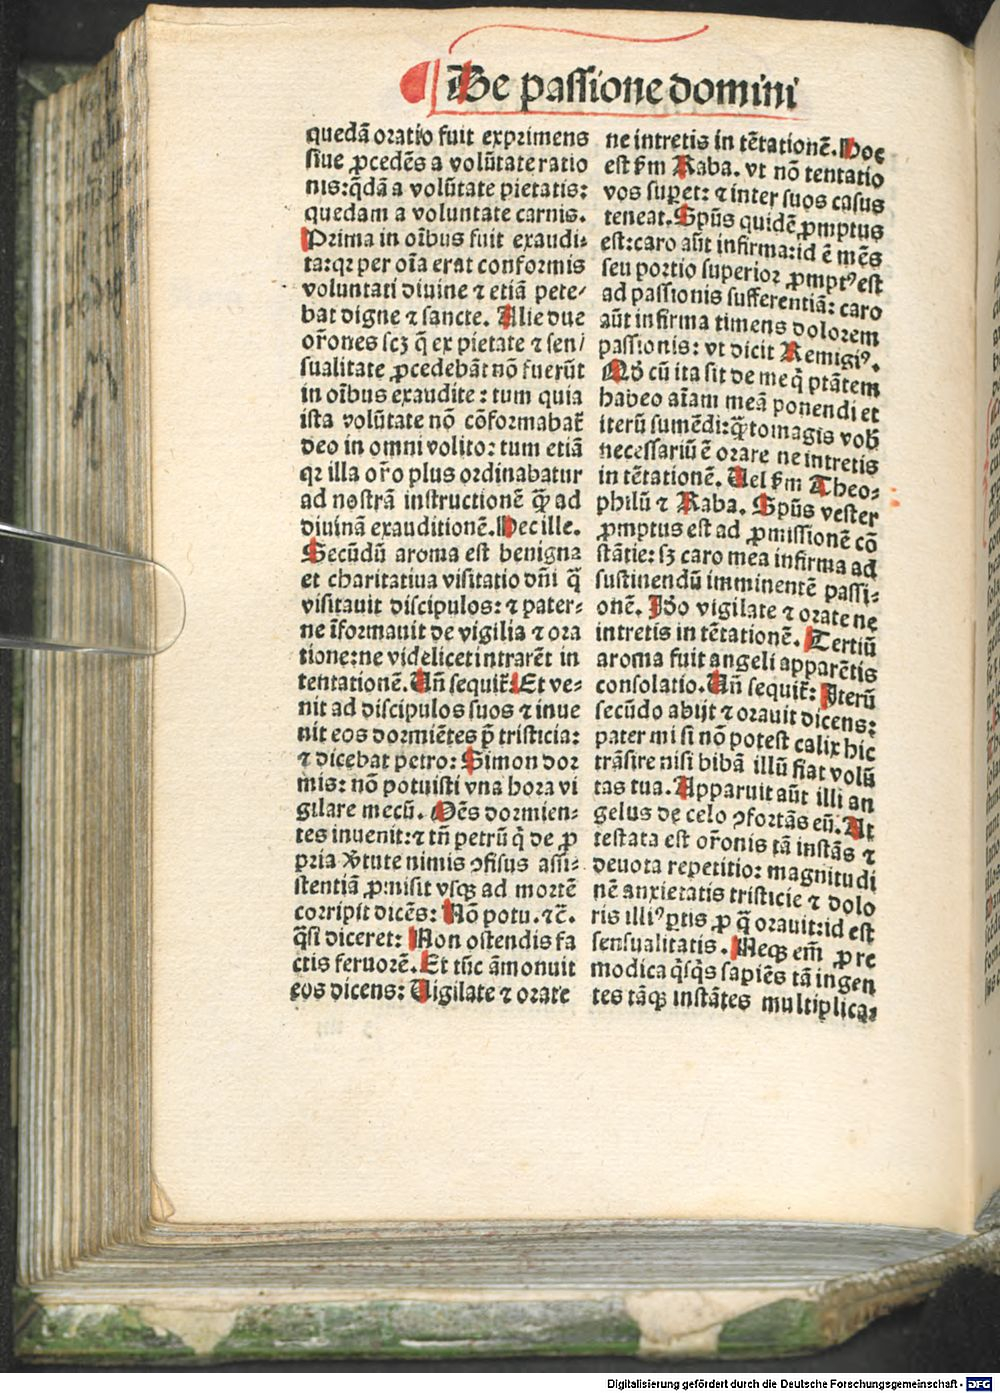 De passione domini
quedā oratio fuit exprimens
siue ꝓcedēs a volūtate ratio
nis: q̄dā a volūtate pietatis:
quedam a voluntate carnis.
Prima in oībus fuit exaudi⸗
ta: qꝛ per oīa erat conformis
voluntati diuine ⁊ etiā pete⸗
bat digne ⁊ sancte. Alie due
or̄ones scꝫ q̄ ex pietate ⁊ sen/
sualitate ꝓcedebāt nō fuerūt
in oībus exaudite: tum quia
ista volūtate nō cōformabat̄
deo in omni volito: tum etiā
qꝛ illa or̄o plus ordinabatur
ad nostrā instructionē q̄ꝫ ad
diuinā exauditionē. Hec ille.
Secūdū aroma est benigna
et charitatiua visitatio dn̄i q̄
visitauit discipulos: ⁊ pater⸗
ne īformauit de vigilia ⁊ ora
tione: ne videlicet intrarēt in
tentationē. Un̄ sequit̄: Et ve⸗
nit ad discipulos suos ⁊ inue
nit eos dormiētes p̄ tristicia:
⁊ dicebat petro: Simon dor
mis: nō potuisti vna hora vi
gilare mecū. Oēs dormien⸗
tes inuenit: ⁊ tn̄ petrū q̇ de ꝓ
pria v̓tute nimis ꝯfisus assi⸗
stentiā ꝓmisit vsqꝫ ad mortē
corripit dicēs: Nō potu. ⁊c̄.
q̄si diceret: Non ostendis fa
ctis feruorē. Et tūc āmonuit
eos dicens: Uigilate ⁊ orate
ne intretis in tētationē. Hoc
est ẜm Raba. vt nō tentatio
vos suꝑet: ⁊ inter suos casus
teneat. Spūs quidē ꝓmptus
est: caro aūt infirma: id ē mēs
seu portio superior ꝓmptꝰ est
ad passionis sufferentiā: caro
aūt infirma timens dolorem
passionis: vt dicit Remigiꝰ.
Mō cū ita sit de me q̇ ptātem
habeo aīam meā ponendi et
iterū sumēdi: q̄ꝫtomagis vob̄
necessariū ē orare ne intretis
in tētationē. Uel ẜm Theo⸗
philū ⁊ Raba. Spūs vester
ꝓmptus est ad ꝓmissionē cō
stātie: sꝫ caro mea infirma ad
sustinendū imminentē passi⸗
onē. Iđo vigilate ⁊ orate ne
intretis in tētationē. Tertiū
aroma fuit angeli apparētis
consolatio. Un̄ sequit̄: Iterū
secūdo abijt ⁊ orauit dicens:
pater mi si nō potest calix hic
trāsire nisi bibā illū fiat volū
tas tua. Apparuit aūt illi an
gelus de celo ꝯfortās eū. At
testata est or̄onis tā instās ⁊
deuota repetitio: magnitudi
nē anxietatis tristicie ⁊ dolo
ris illiꝰ ꝑtis ꝓ q̄ orauit: id est
sensualitatis. Neqꝫ em̄ ꝓ re
modica q̇sq̇s sapiēs tā ingen
tes tāqꝫ instātes multiplica⸗
Digitalisierung gefördert durch die Deutsche Forschungsgemeinschaft - DFG